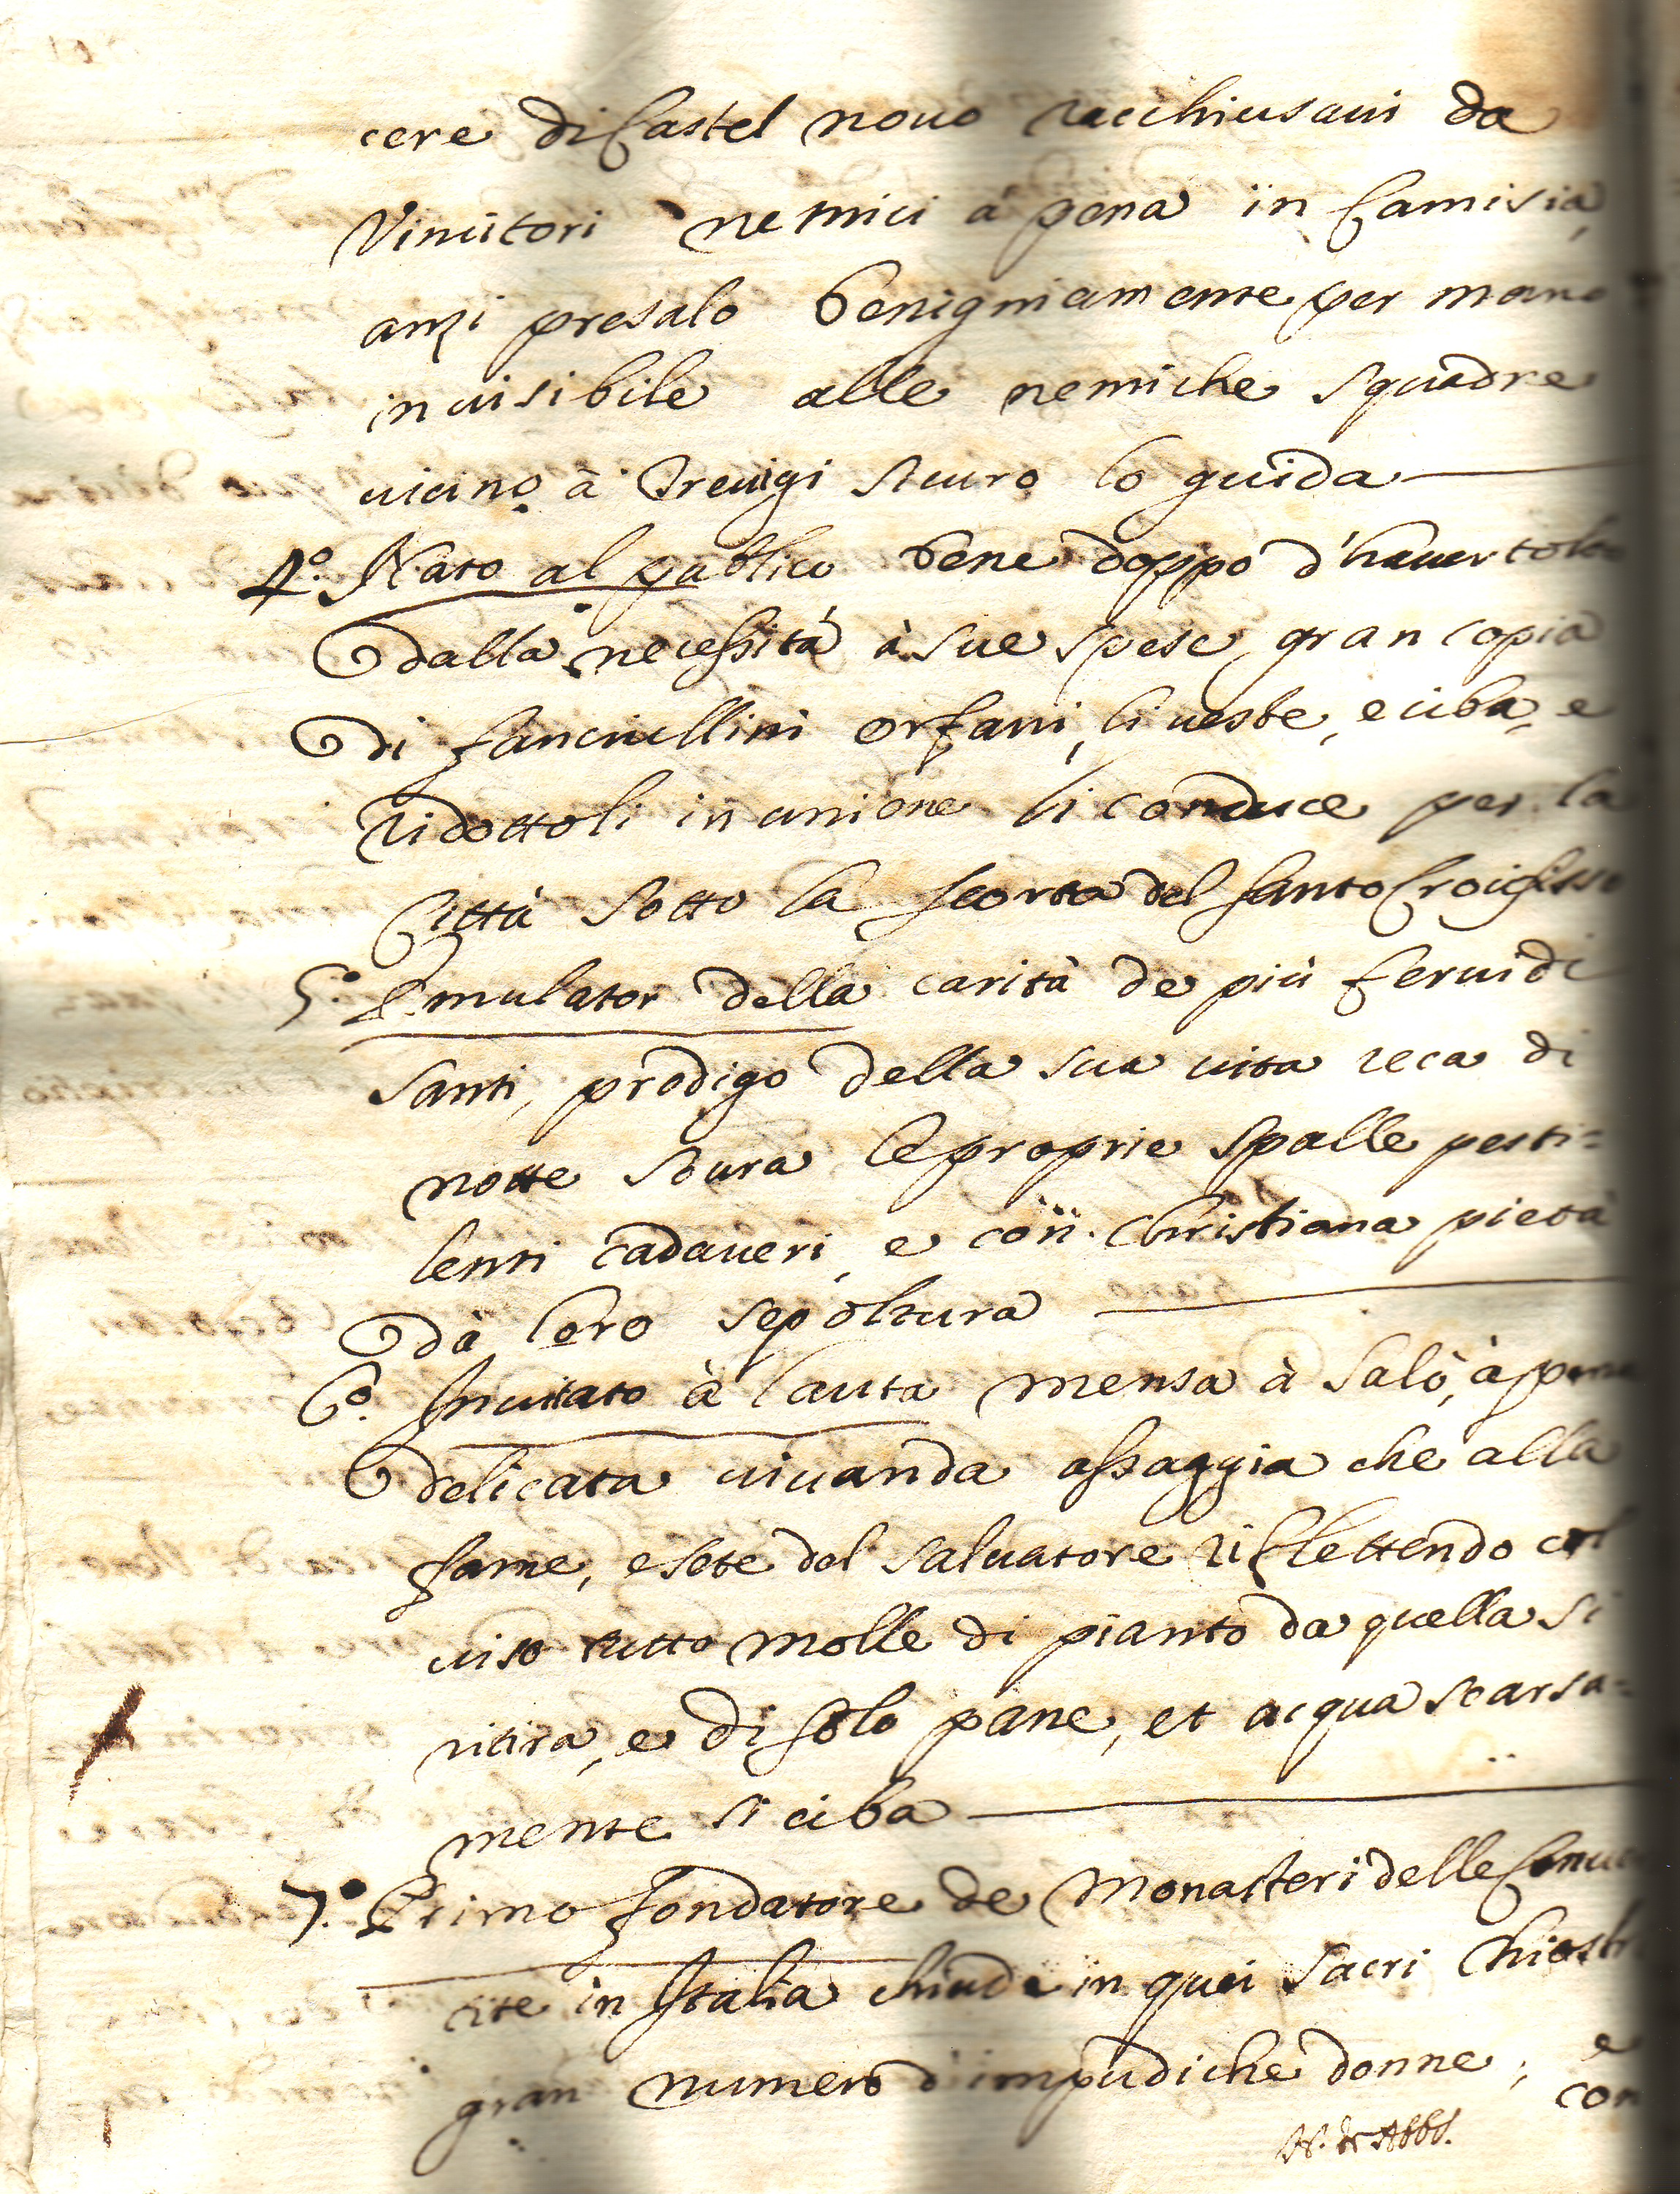 cere di Castel nouo racchiusaui da
Vincitori nemici à pena in Camisia,
anzi presalo benigniamente per mano
inuisibile alle nemiche squadre
uicino à Treuigi sicuro lo guida
4.º Nato al publico bene doppo d'hauer tolto
dalla necessità à sue spese gran copia
di fanciullini orfani, li ueste, e ciba, e
ridottoli in unione li conduce per la
Città sotto la scorta del santo Crocifisso
5.º Emulator della carità de più feruidi
Santi, prodigo della sua uita reca di
notte soura le proprie spalle pesti=
lenti cadaueri, e con Christiana pietà
dà loro sepoltura
6.º Inuitato à lauta mensa à Salò, à pena
delicata uiuanda assaggia che alla
fame, e sete del Saluatore riflettendo col
uiso tutto molle di pianto da quella si
ritira, e di solo pane, et acqua scarsa=
mente si ciba
7.º Primo fondatore de Monasteri delle Conuer
tite in Italia chiude in quei Sacri Chiostri
gran numero d'impudiche donne, e
con